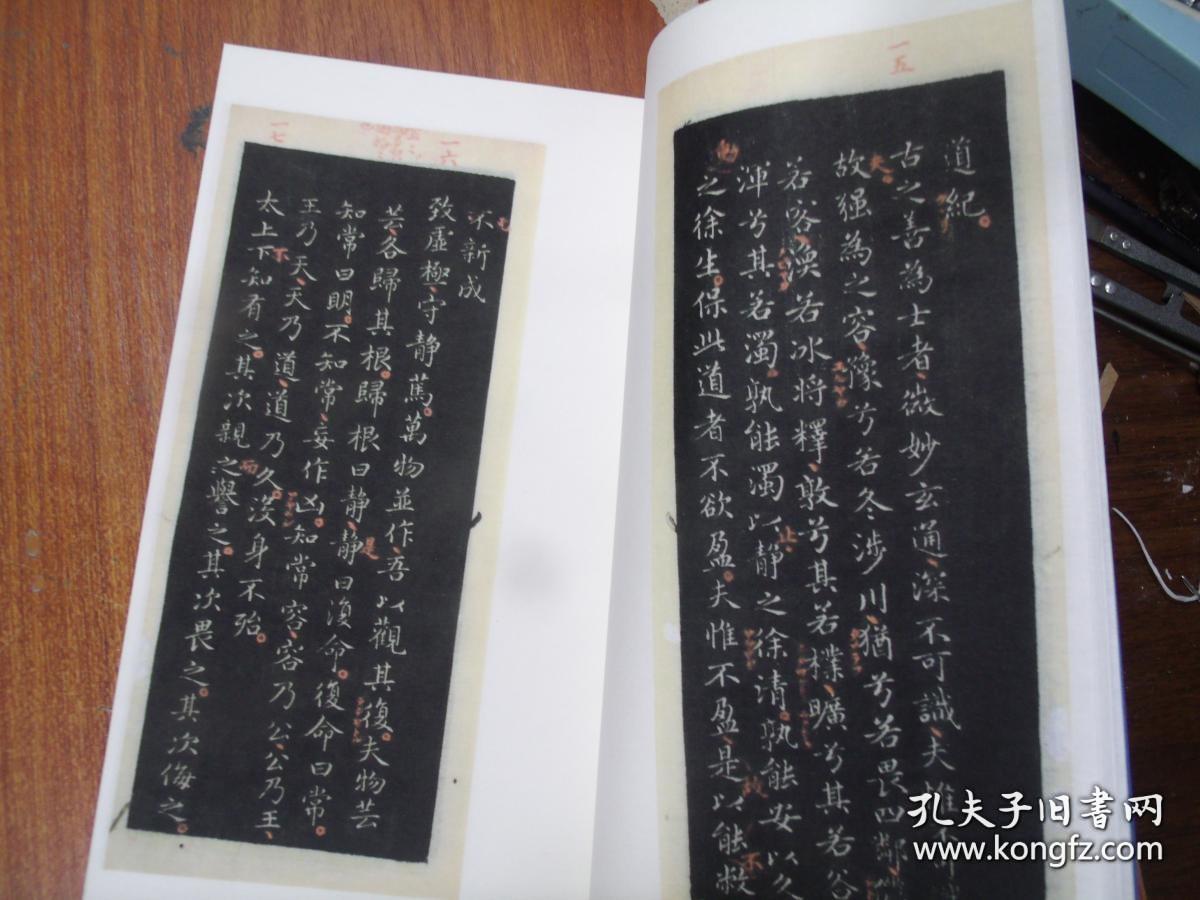 一五
道紀。
古之善為士者、微妙玄通、深不可識、夫惟不
故强為之容、豫兮若冬涉川、猶兮若畏四鄰、
若容、渙若冰將釋、敦兮其若樸、曠兮其若谷
渾兮其若濁。孰能濁以静之徐清。孰能安以久
之徐生。保此道者不欲盈。夫惟不盈、是以能敝
一六
不新成
致虛極、守静篤。萬物並作、吾以觀其復。夫物芸
芸、各歸其根。歸根曰静、静曰復命。復命曰常。
知常曰明。不知常、妄作凶。知常容、容乃公、公乃王、
王乃天、天乃道、道乃久。沒身不殆。
一七
太上下知有之。其次親之譽之。其次畏之。其次侮之。
孔夫子旧书网
www.kongfz.com